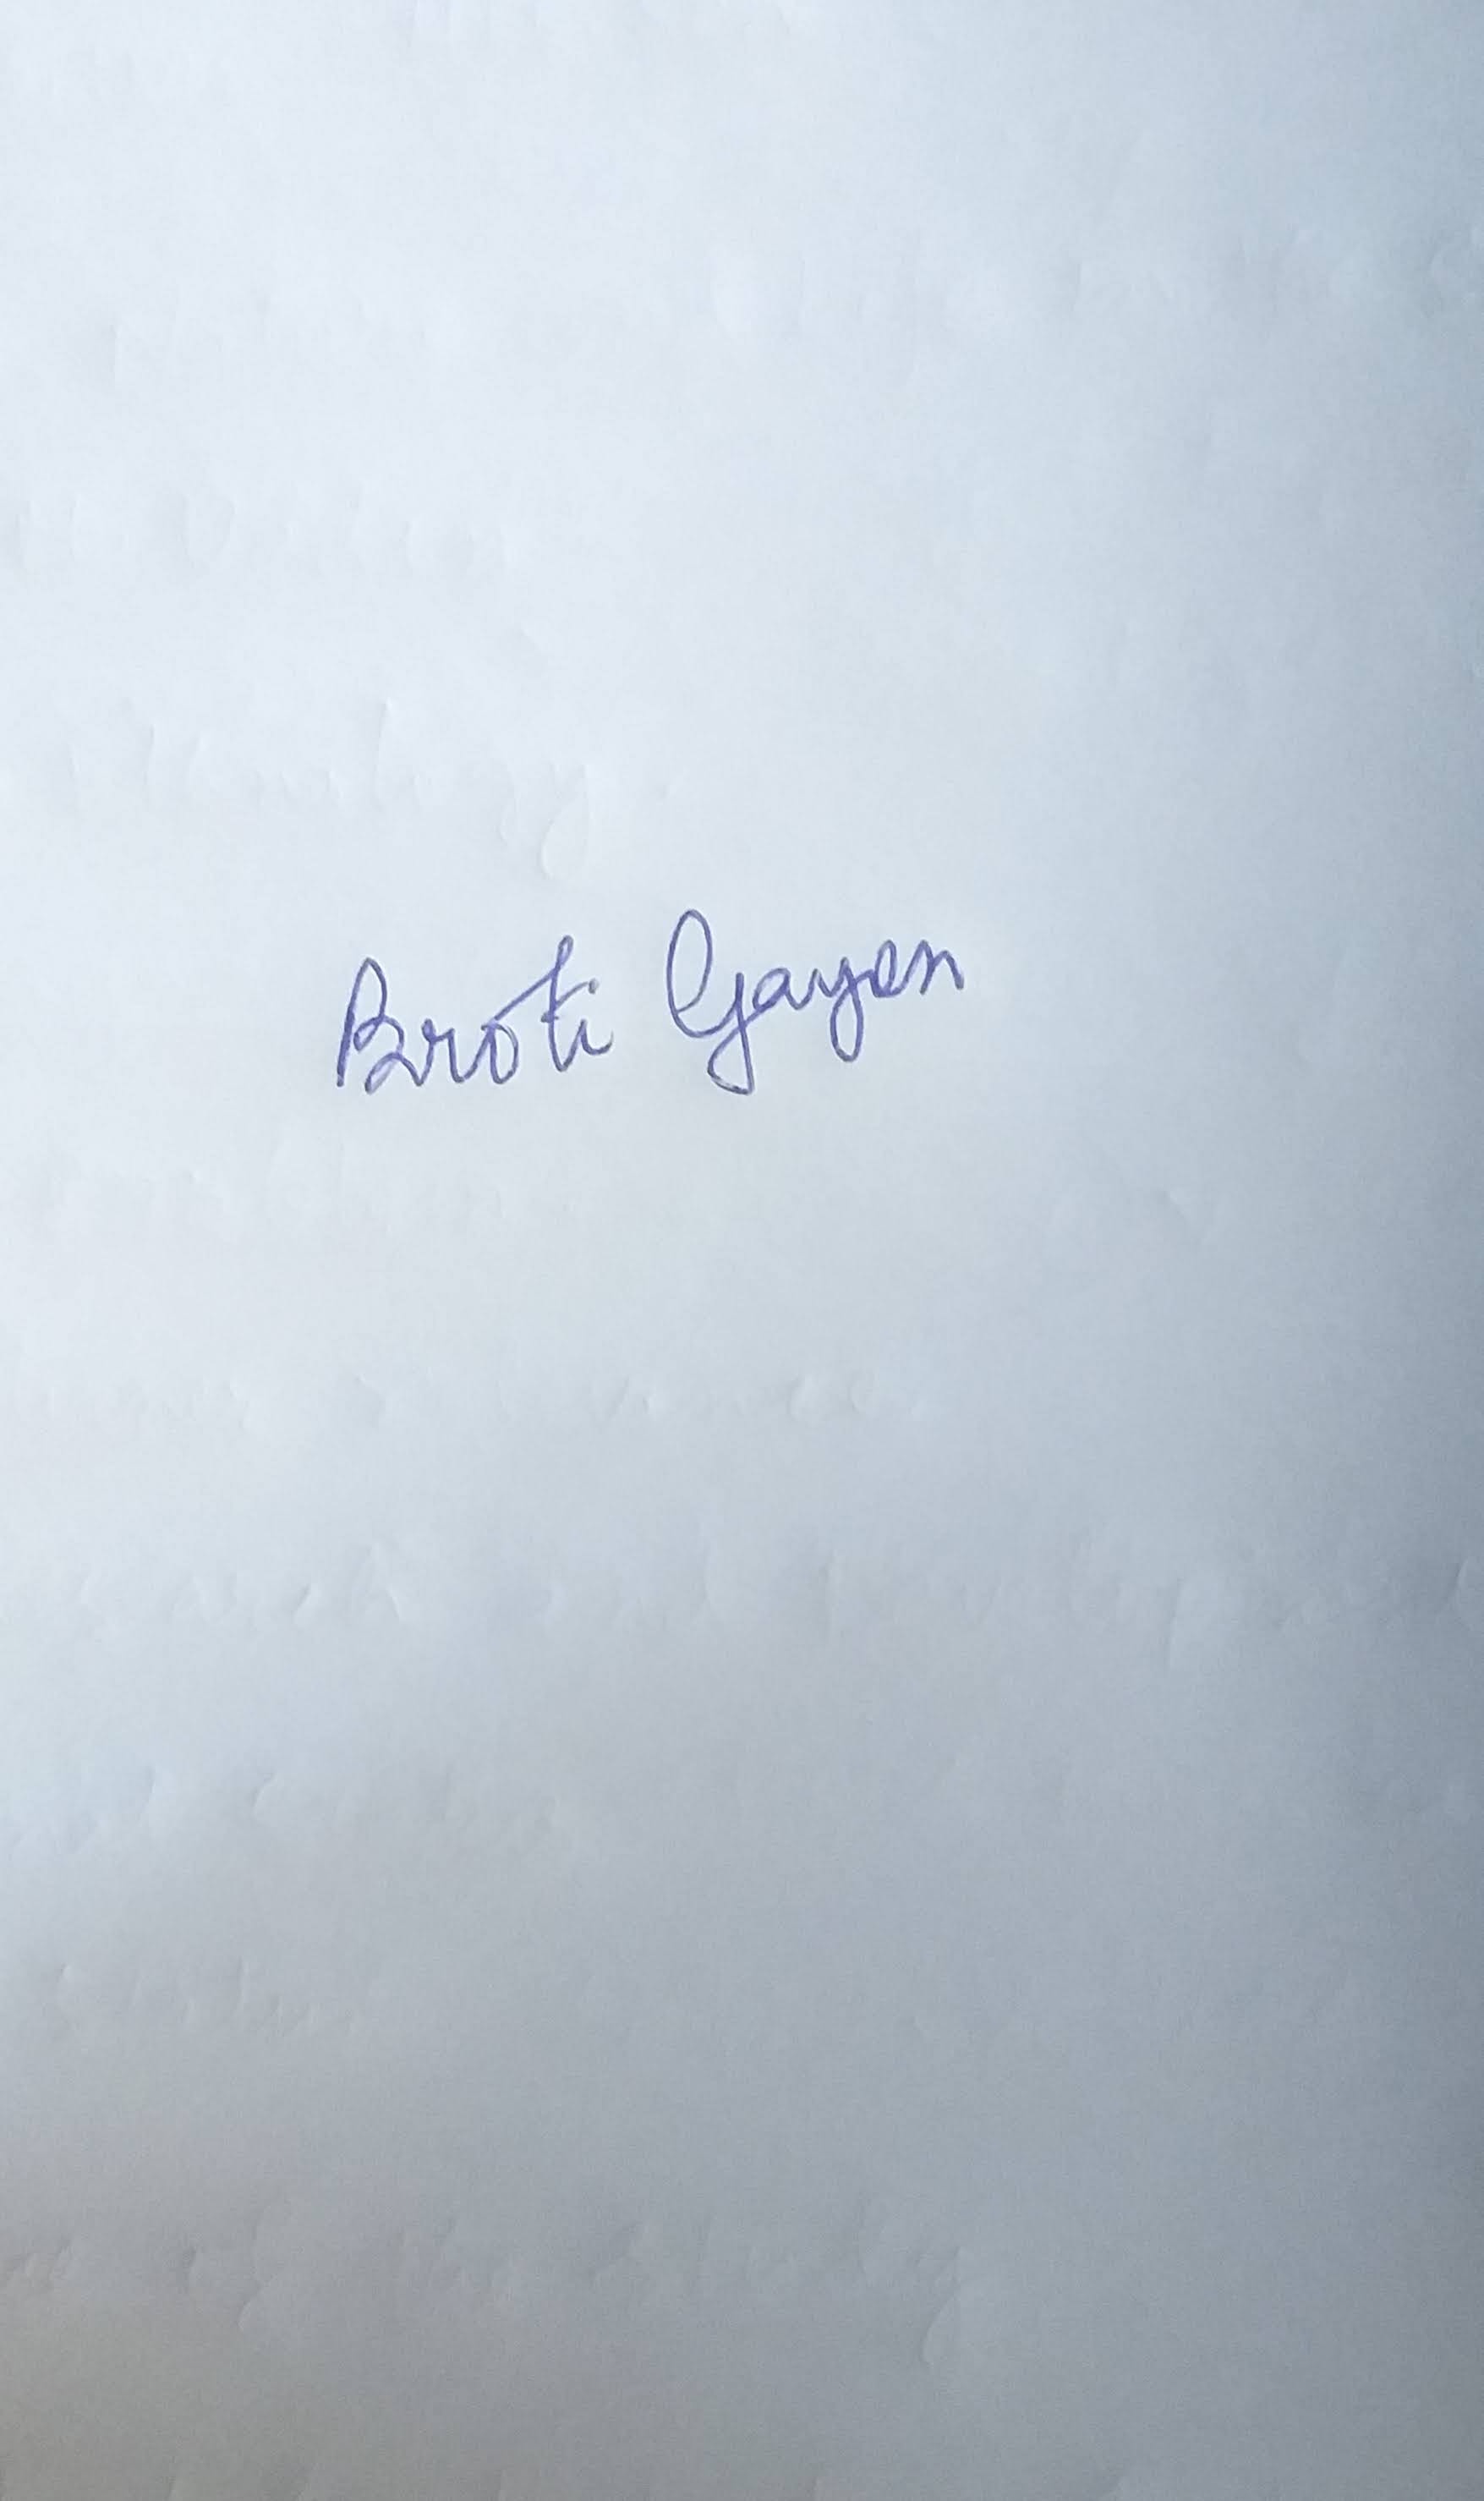 Broti Gayen